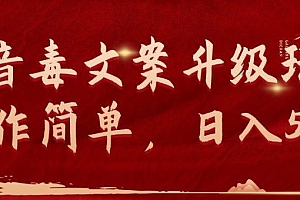 音毒文案升级
作简单，日入5